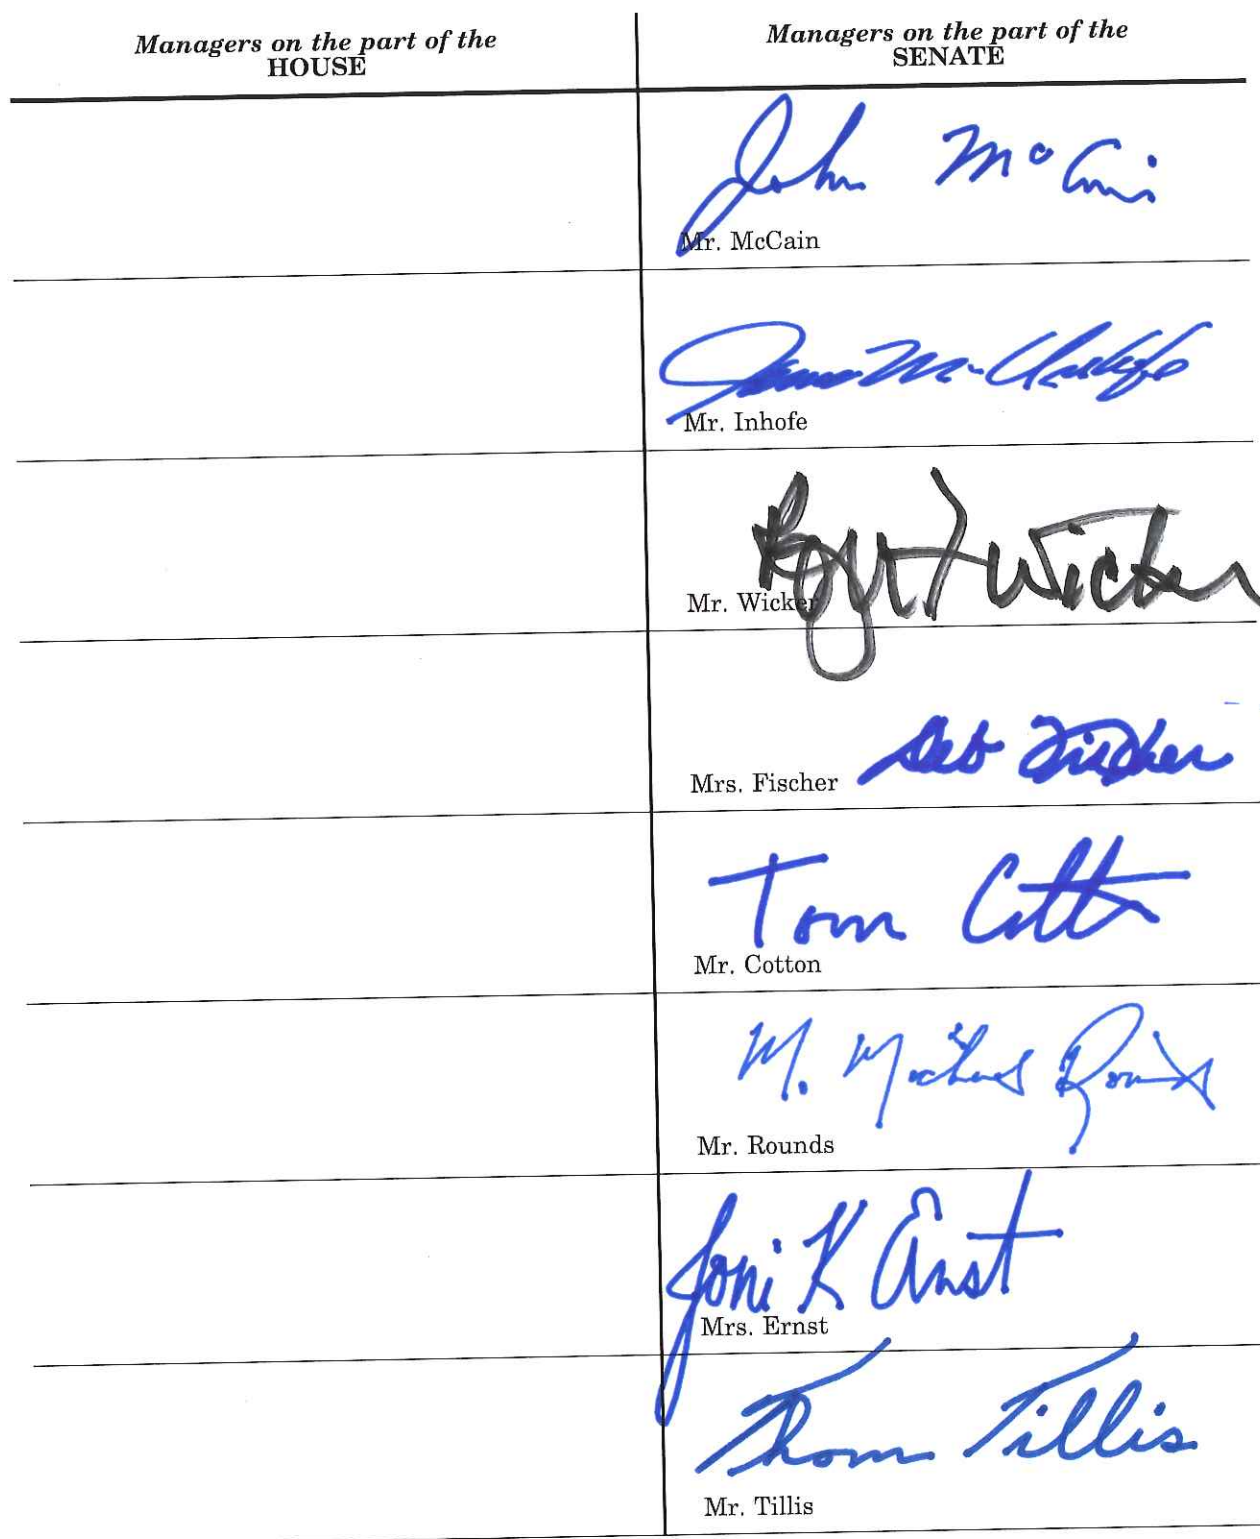 Managers on the part of the
HOUSE
Managers on the part of the
SENATE
John McCain
Mr. McCain
James M. Inhofe
Mr. Inhofe
Roger F Wicker
Mr. Wicker
Deb Fischer
Mrs. Fischer
Tom Cotton
Mr. Cotton
M. Michael Rounds
Mr. Rounds
Joni K Ernst
Mrs. Ernst
Thom Tillis
Mr. Tillis